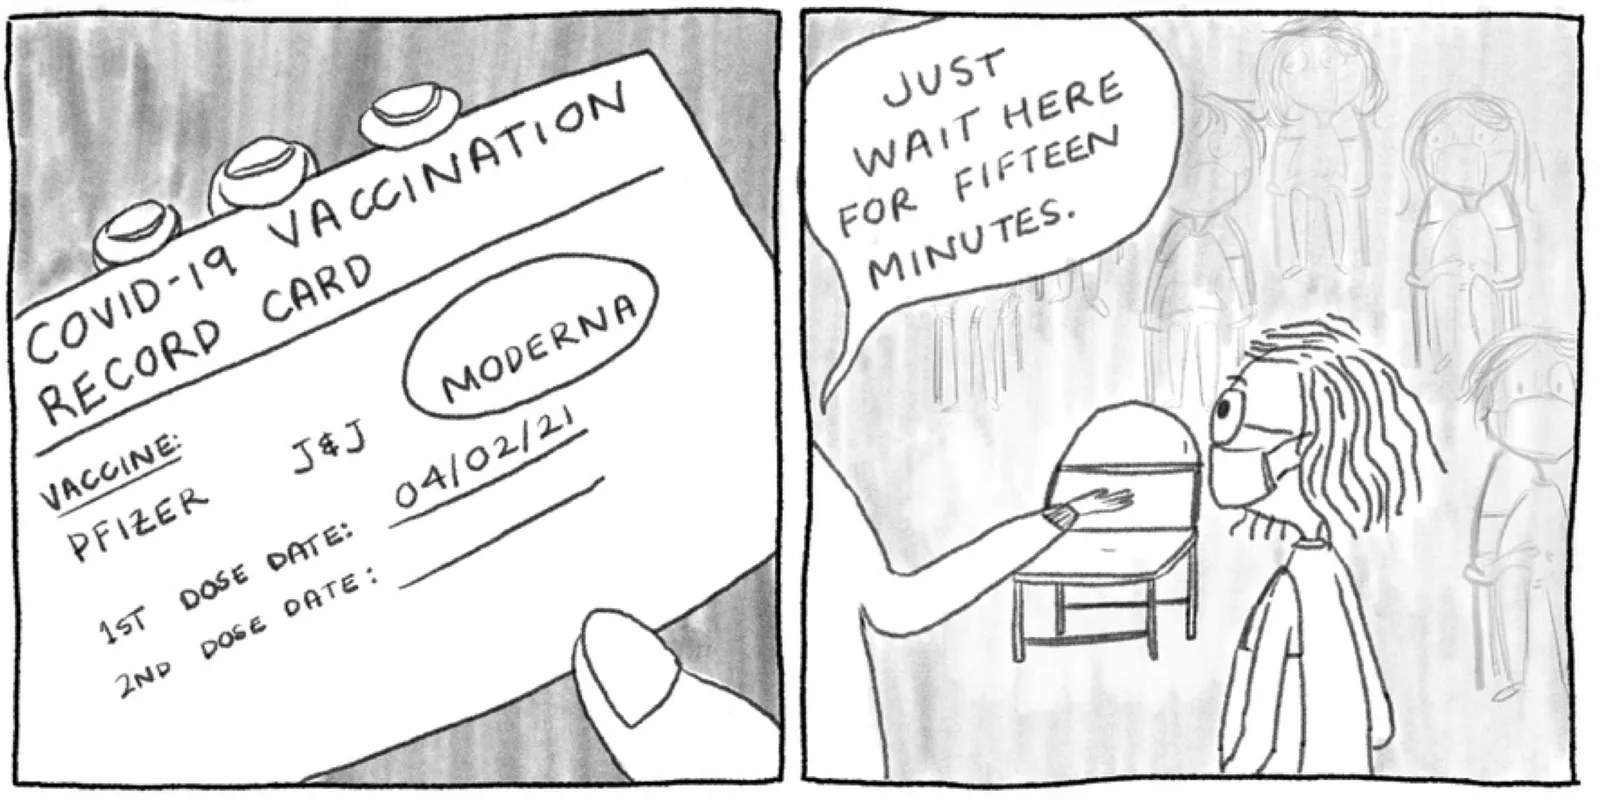 COVID-19 VACCINATION
RECORD CARD
VACCINE:
PFIZER J&J MODERNA
1ST DOSE DATE: 04/02/21
2ND DOSE DATE:
JUST
WAIT HERE
FOR FIFTEEN
MINUTES.